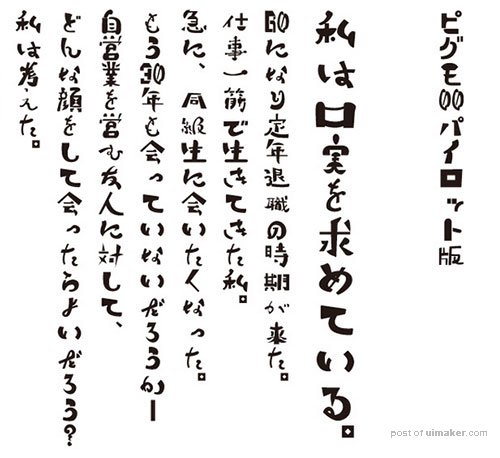 ピグモ00パイロット版
私は口実を求めている。
60になり定年退職の時期が来た。
仕事一筋で生きてきた私。
急に、同級生に会いたくなった。
もう30年も会っていないだろうかー
自営業を営む友人に対して、
どんな顔をして会ったらよいだろう?
私は考えた。
post of uimaker.com